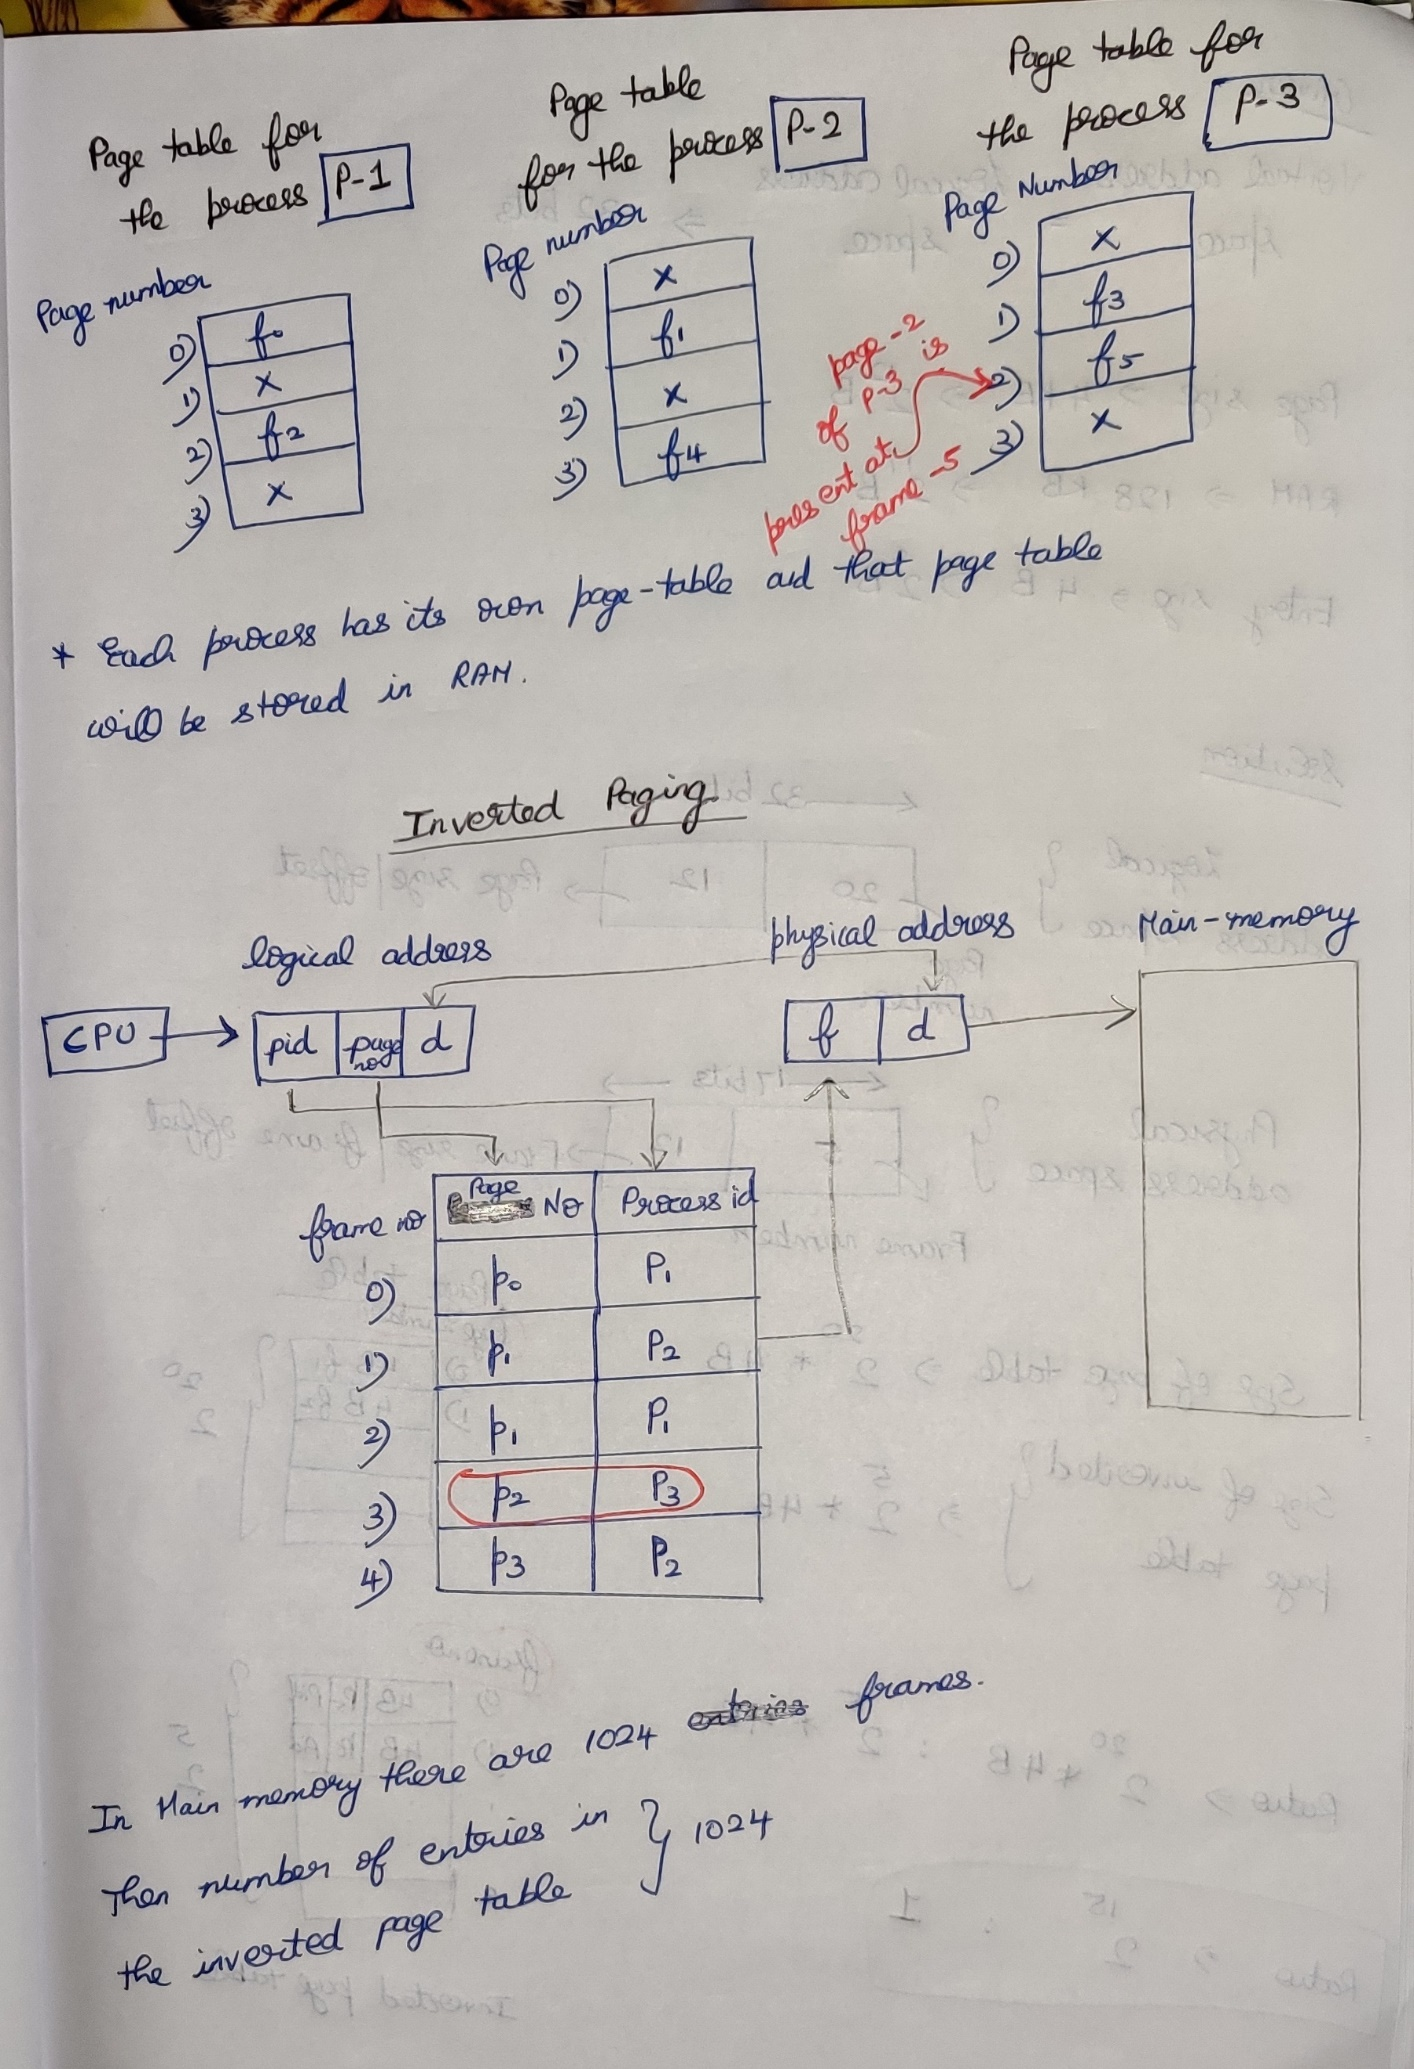 Page table for
the process P-1
Page number
0) f0
1) x
2) f2
3) x
Page table
for the process P-2
Page number
0) x
1) f1
2) x
3) f4
Page table for
the process P-3
Page Number
0) x
1) f3
2) f5
3) x
page-2
of P-3 is
present at
frame-5
* Each process has its own page-table ad that page table
will be stored in RAM.
Inverted Paging
logical address
physical address
Main-memory
CPU
pid page no d
f d
frame no Page No Process id
0) p0 P1
1) p1 P2
2) p1 P1
3) p2 P3
4) p3 P2
In Main memory there are 1024 entries frames.
Then number of entries in } 1024
the inverted page table